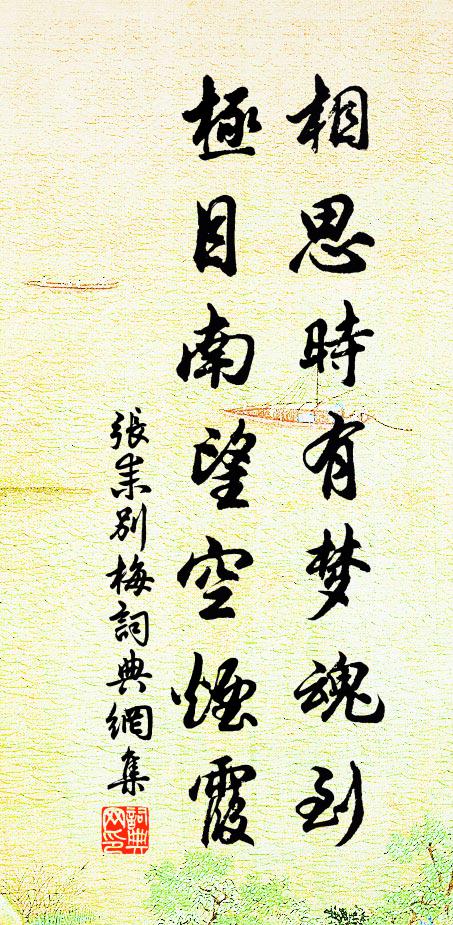 相思時有梦魂到
極目南望空煙霞
張耒別梅詞典網集
詞典網印